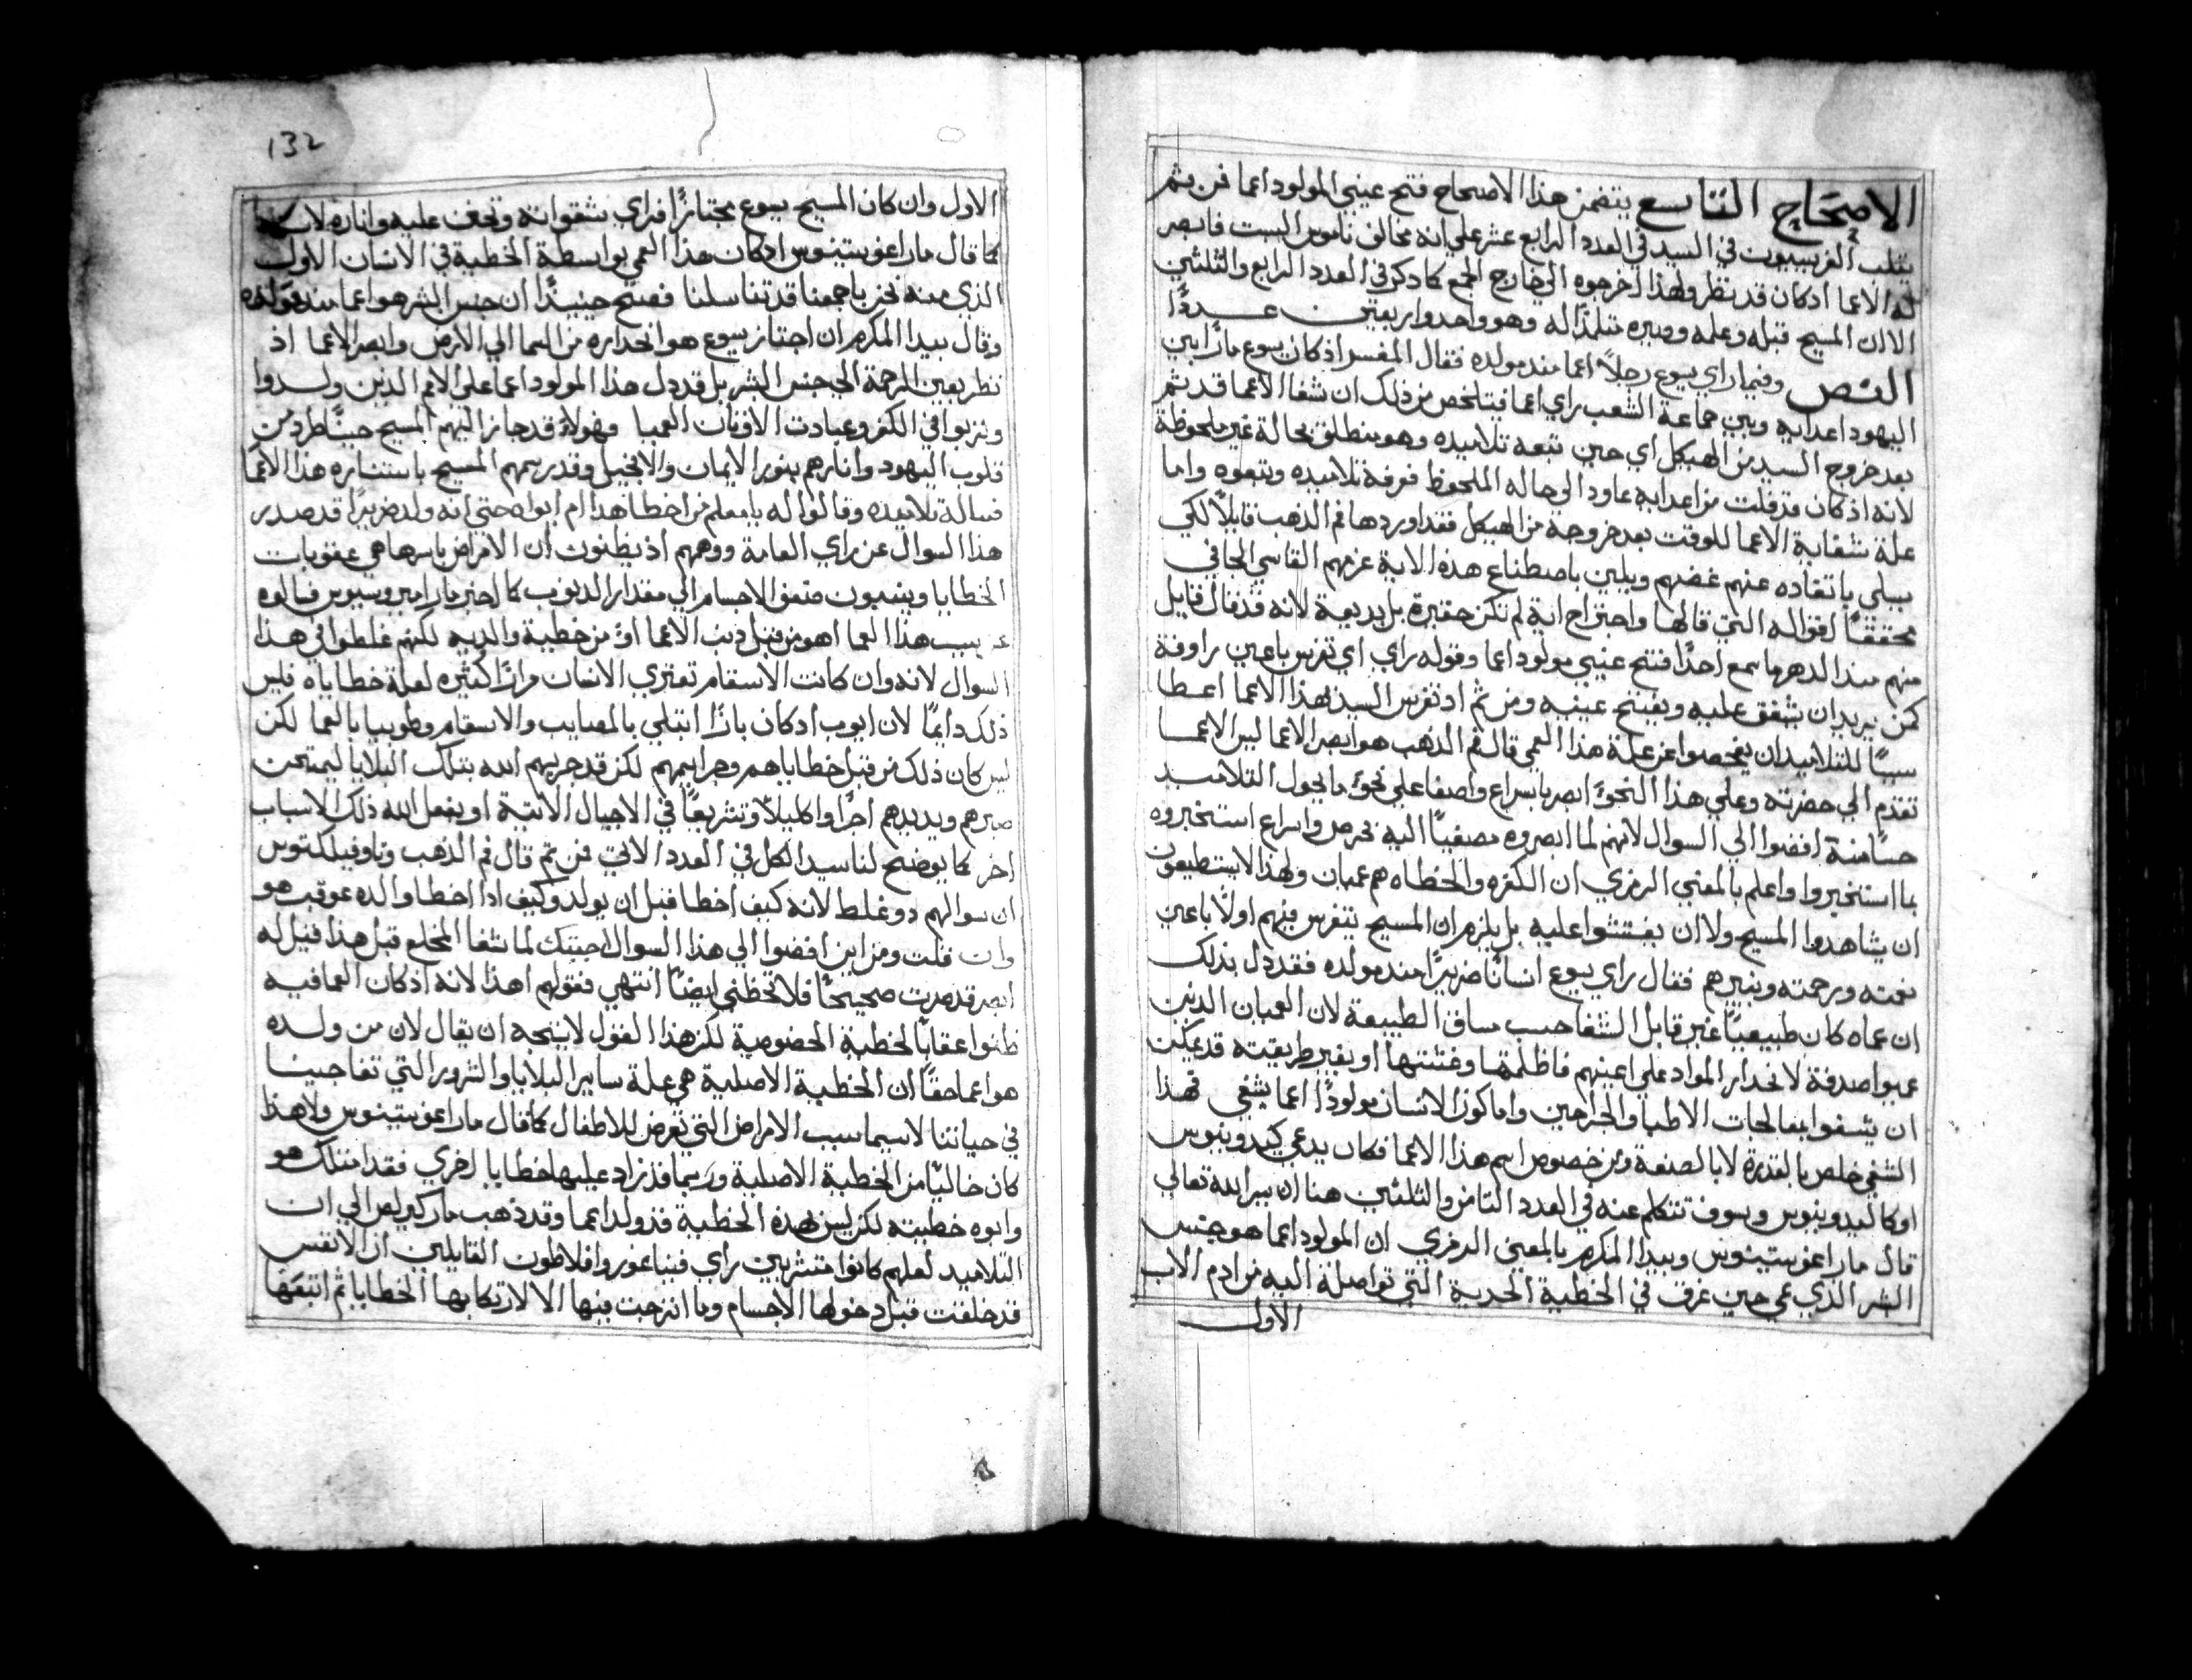 الاصحاح التاسع يتضمن هذا الاصحاح فتح عيني المولود اعما فمن ثم
يثلب الفريسيون في السيد في العدد الرابع عشر علي انه مخالف ناموس السبت فابصر
له الاعما ادكان قد نظر ولهذا اخرجوه الي خارج المجمع كما دكر في العدد الرابع والثلثين
الا ان المسيح قبله وعلمه وصيره متلمذًا له وهو واحد واربعين عــددًا
النص وفيما راي يسوع رجلاً اعما مند مولده فقال المفسر اذ كان يسوع مارًا بين
اليهود اعدايه وبين جماعة الشعب راي اعما فيتلخص من ذلك ان شفا الاعما قد تم
بعد خروج السيد من الهيكل اي حين تبعه تلاميده وهو منطلق بحالة غير ملحوظة
لانه اذ كان قد فلت من اعدايه عاود الي حاله الملحوظ فعرفه تلاميده وتبعوه واما
علة شفاية الاعما للوقت بعد خروجه من الهيكل فقد اوردها فم الذهب قايلاً لكي
يسلي باتقاده عنهم غضبهم ويلين باصطناع هذه الاية عزمهم القاسي الجافي
محققًا اقواله التي قالها واجتراح اية لم تكن حقيرة بل بديعة لانه قد قال قايل
منهم مند الدهر ما سمع احدًا فتح عيني مولود اعما وقوله راي اي تفرس باعين راوفة
كمن يريد ان يشفق عليه ويفتح عينيه ومن ثم اد تفرس السيد بهذا الاعما اعـطا
سببًا للتلاميد ان يفحصوا عن علة هذا العمي قال فم الدهب هو ابصر الاعما ليس الاعمــا
تقدم الي حضرته وعلي هذا النحو ابصر باسراع واصفا علي نحو ما يحول التلاميــد
حسًا منه افضوا الي السوال لانهم لما ابصروه مصغيًا اليه بحرص واسراع استخبروه
بما استخبروا واعلم بالمعني الرمزي ان الكفره والخطاه هم عميان ولهذا لا يستطيعون
ان يشاهدوا المسيح ولا ان يفتشوا عليه بل يلزم ان المسيح يتفرس فيهم اولاً باعين
نعمته ورحمته وينيرهم فقال راي يسوع انسانًا ضريرًا مند مولده فقد دل بذلك
ان عماه كان طبيعيًا غير قابل الشفا حسب مساق الطبيعة لان العميان الدين
عميوا صدفة لانحدار المواد علي اعينهم فاظلمتها وغشتها او بغير طريقته قد يمكن
ان يشفوا بمعالجات الاطبا والجراحين واما كون الانسان مولودًا اعما يشفي فهذا
الشفي خاص بالقدرة لا بالصنعة ومن خصوص اسم هذا الاعما فكان يدعي كيدونيوس
او كاليدونيوس وسوف نتكلم عنه في العدد الثامن والثلثين هنا ان يسر الله تعالي
قال مار اغوستينوس وبيدا المكرم بالمعني الرمزي ان المولود اعما هو جنس
البشر الذي عمي حين غرق في الخطية الجدية التي تواصلة اليه من ادم الاب
الاول
132
الاول وان كان المسيح يسوع مجتازًا فراي شقواته وتعطف عليه واناره لان
كما قال مار اغوستينوس ادكان هذا العمي بواسطة الخطية في الانسان الاول
الذي منه نحن باجمعنا قد تناسلنا فصح حينيذًا ان جنس البشر هو اعما مند مولده
وقال بيدا المكرم ان اجتاز يسوع هو انحداره من السما الي الارض وابصر الاعما اذ
نظر بعين الرحمة الي جنس البشر بل قد دل هذا المولود اعما علي الامم الدين ولــدوا
وتربوا في الكفر وعبادت الاوثان العميا فهولاء قد جاز اليهم المسيح حينًا طرد من
قلوب اليهود وانارهم بنور الايمان والانجيل وقد رسمهم المسيح باستناره هذا الاعما
فساله تلاميده وقالوا له يا معلم من اخطا هذا ام ابواه حتي انه ولد ضريرًا قد صدر
هذا السوال عن راي العامة ووهمهم اذ يظنون ان الامراض باسرها هي عقوبات
الخطايا وينسبون ضعف الاجسام الي مقدار الدنوب كما اخبر مار امبروسيوس فسالوه
عن سبب هذا العما اهو من قبل ذنب الاعما او من خطية والديه لكنهم غلطوا في هــذا
السوال لانه وان كانت الاسقام تعتري الانسان مرارًا كثيره لعلة خطاياه فليس
ذلك دايمًا لان ايوب ادكان بارًا ابتلي بالمصايب والاسقام وطوبيا بالعما لكن
ليس كان ذلك من قبل خطاياهم وجرايمهم لكن قد جربهم الله بتلك البلايا ليمتحن
صبرهم ويديدهم اجرًا واكليلاً وتشريفًا في الاجيال الاتية او يفعل الله ذلك لاسباب
اخر كما يوضح لنا سيد الكل في العدد الاتي فمن ثم قال فم الدهب وثاوفيلكتوس
ان سوالهم دو غلط لانه كيف اخطا قبل ان يولد وكيف ادا اخطا والده عوقب هو
وان قلت ومن اين افضوا الي هذا السوال اجبتك لما شفا المخلع قبل هذا قيل له
ابصر قد صرت صحيحًا فلا تخطئي ايضًا انتهي فقولهم اهذا لانه اذ كان العما فيه
ظنوا عقابًا لخطية الخصوصية لكن هذا القول لا يتجه ان يقال لان من ولــده
هو اعما حقًا ان الخطية الاصلية هي علة ساير البلايا والشرور التي تفاجينــا
في حياتنا لاسيما سبب الامراض التي تعرض للاطفال كما قال مار اغوستينوس ولا هذا
كان خاليًا من الخطية الاصلية وربما قد زاد عليها خطايا اخري فقد امتلك هو
وابوه خطيته لكن ليس بهذه الخطية قد ولد اعما وقد ذهب مار كيرلص الي ان
التلاميد لعلهم كانوا متشربين راي فيتاغورو افلاطون القايلين ان الانفس
قد خلقت قبل دخولها الاجسام وما انزجت فيها الا لارتكابها الخطايا ثم اتبعها